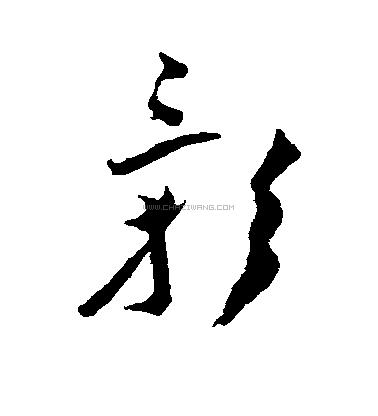 影
WWW.CHAZIWANG.COM